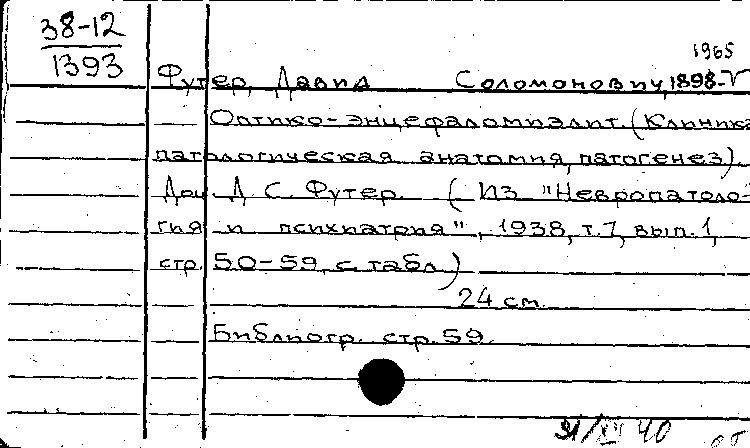 38-12
1393
1965
Футер, Давид Соломонович, 1898-
Оптико-энцефаломиэлит. (Клиника
патологическая анатомия, патогенез).
Доц. Д. С. Футер. (Из "Невропатоло-
гия и психиатрия", 1938, т. 7, вып. 1,
стр. 50-59, с табл.)
24 см.
Библиогр. стр. 59.
40